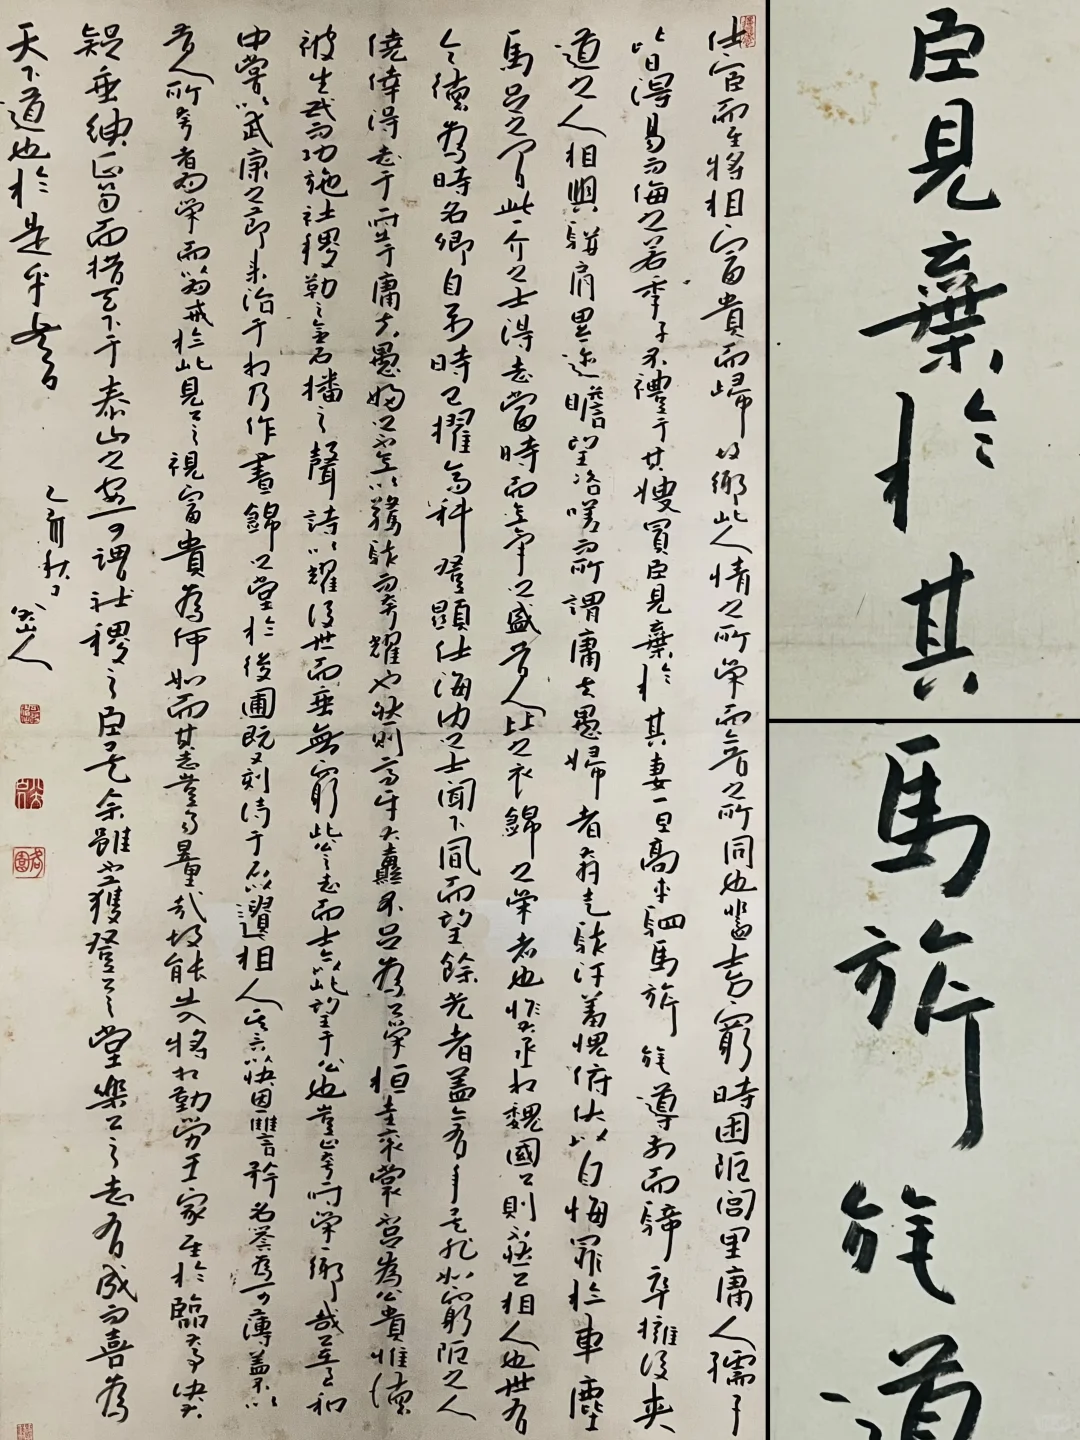 仕宦而至將相富貴而歸故鄉此人情之所榮而今昔之所同也蓋士方窮時困阨閭里庸人孺子
皆得易而侮之若季子不禮于其嫂買臣見棄於其妻一旦高車駟馬旂旄導前而騎卒擁後夾
道之人相與駢肩累迹瞻望咨嗟而所謂庸夫愚婦者奔走駭汗羞愧俯伏以自悔罪於車塵
馬足之間此一介之士得志當時而意氣之盛昔人比之衣錦之榮者也惟大丞相魏國公則不然公相人也世有
令德為時名卿自公時已擢高科登顯仕海內之士聞下風而望餘光者蓋亦有年矣非如窮阨之人
僥倖得志于一時庸夫愚婦之不意以驚駭而夸耀也然則高牙大纛不足為公榮桓圭袞裳不足為公貴惟德
被生民而功施社稷勒之金石播之聲詩以耀後世而垂無窮此公之志而士亦以此望于公也豈止夸一時榮一鄉哉公至和
中嘗以武康之節來治于相乃作晝錦之堂於後圃既又刻詩于石以遺相人其言以快恩讎矜名譽為可薄蓋不以
昔人所夸者為榮而以為戒於此見公之視富貴為何如而其志豈易量哉故能出入將相勤勞王家至於臨大事決大
議垂紳正笏而措天下于泰山之安可謂社稷之臣矣余雖不獲登公之堂樂公之志有成而喜為
天下道也於是乎書
乙亥秋日
八大山人
臣見棄於其
馬旂旄導